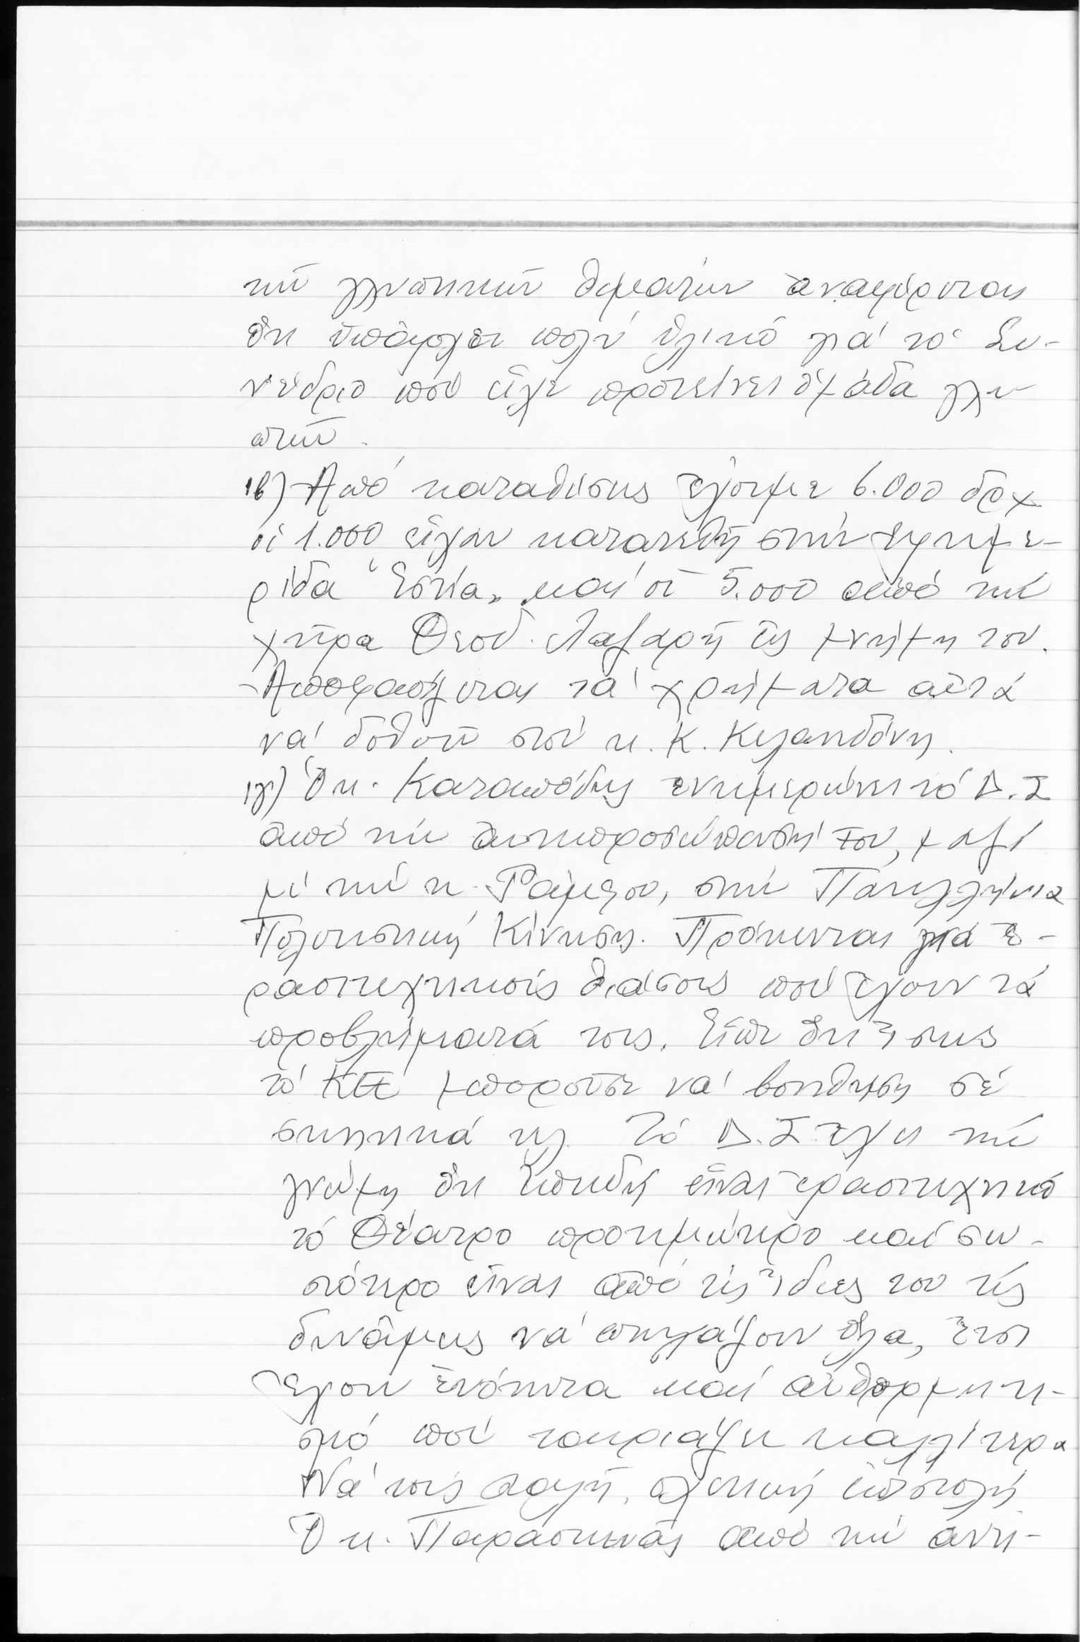 τῶν γλυπτικῶν θεμάτων ἀναφέρεται
ὅτι ὑπάρχει πολύ ὑλικό γιά τό Συ-
νέδριο πού εἶχε προτείνει ὁμάδα γλυ-
πτῶν.
ιβ) Ἀπό καταθέσεις ἔχουμε 6.000 δρχ
οἱ 1.000 εἶχαν κατατεθῆ στήν ἐφημε-
ρίδα "Ἑστία" καί οἱ 5.000 ἀπό τήν
χήρα Θεοδ. Λαζαρῆ εἰς μνήμη του.
Ἀποφασίζεται τά χρήματα αὐτά
νά δοθοῦν στόν κ. Κ. Κηλαηδόνη.
ιγ) Ὁ κ. Καταπόδης ἐνημερώνει τό Δ.Σ
ἀπό τήν ἀντιπροσώπευσή του, μαζί
μέ τήν κ. Ράμσου, στήν Πανελλήνια
Πολιτιστική Κίνηση. Πρόκειται γιά ἐ-
ρασιτεχνικούς θιάσους πού ἔχουν τά
προβλήματά τους. Εἶπε ὅτι ἴσως
τό ΚΕΕ μποροῦσε νά βοηθήση σέ
σκηνικά κλ. Τό Δ.Σ ἔχει τήν
γνώμη ὅτι ἐπειδή εἶναι ἐρασιτεχνικό
τό Θέατρο προτιμώτερο καί σω-
στότερο εἶναι ἀπό τίς ἴδιες του τίς
δυνάμεις νά πηγάζουν ὅλα, ἔτσι
ἔχουν ἑνότητα καί αὐθορμητι-
σμό πού ταιριάζει καλλίτερα
Νά τούς σταλῆ σχετική ἐπιστολή
Ὁ κ. Παρασκευᾶς ἀπό τήν ἀντι-